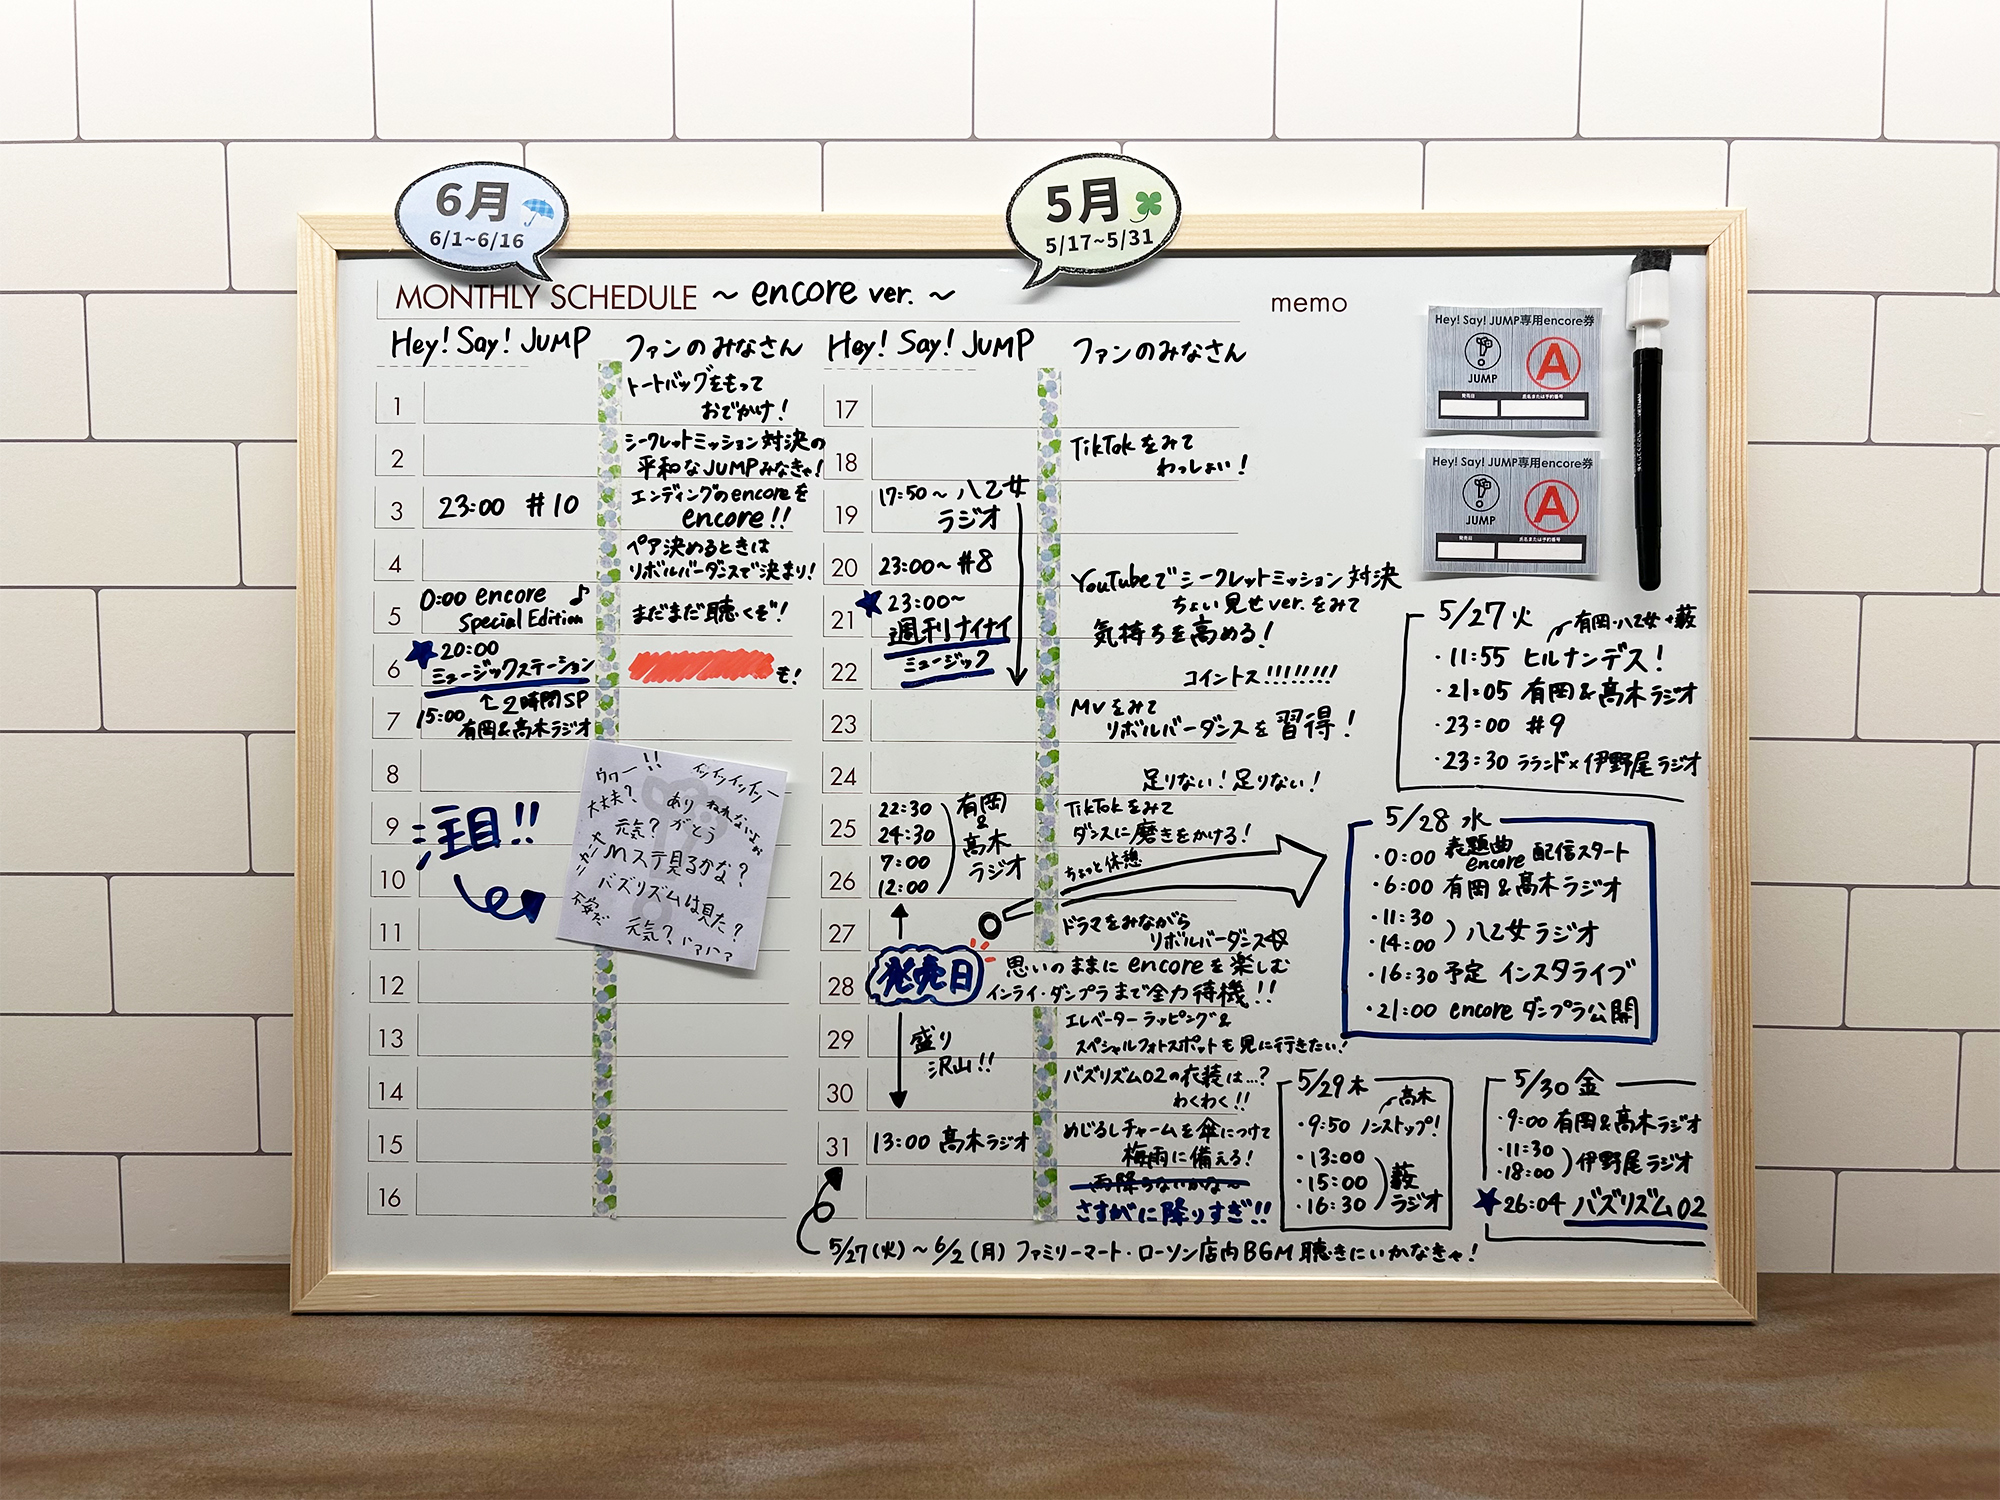 6月
6/1~6/16
5月
5/17~5/31
MONTHLY SCHEDULE ~ encore ver. ~
Hey! Say! JUMP
ファンのみなさん
1
トートバッグをもって
おでかけ!
2
シークレットミッション対決の
平和なJUMPみなきゃ!
3
23:00 #10
エンディングのencoreを
encore!!
4
ペア決めるときは
リボルバーダンスで決まり!
5
0:00 encore ♪
Special Edition
まだまだ聴くぞ!
6
★20:00
ミュージックステーション
↑2時間SP
も!
7
15:00
有岡&髙木ラジオ
8
9
注目!!
10
11
12
13
14
15
16
ウワー!!
イッイッイッイッー
大丈夫?
ありがとう
ねれないよぉ
元気?
Mステ見るかな?
バズリズムは見た?
不安だ
元気?
ハァハァ
Hey! Say! JUMP
ファンのみなさん
17
18
TikTokをみて
わっしょい!
19
17:50~八乙女
ラジオ
20
23:00~#8
YouTubeでシークレットミッション対決
ちょい見せver.をみて
21
★23:00~
週刊ナイナイ
ミュージック
気持ちを高める!
22
コイントス!!!!!!!!
23
MVをみて
リボルバーダンスを習得!
24
足りない!足りない!
25
22:30
24:30
TikTokをみて
ダンスに磨きをかける!
26
7:00
12:00
有岡
&
髙木
ラジオ
ちょっと休憩
27
ドラマをみながら
リボルバーダンス
28
発売日
思いのままにencoreを楽しむ
インライ・ダンプラまで全力待機!!
29
盛り
沢山!!
エレベーターラッピング&
スペシャルフォトスポットも見に行きたい!
30
バズリズム02の衣装は...?
わくわく!!
31
13:00 髙木ラジオ
めじるしチャームを傘につけて
梅雨に備える!
雨降らないかな~
さすがに降りすぎ!!
5/27(火)~6/2(月)ファミリーマート・ローソン店内BGM聴きにいかなきゃ!
memo
Hey! Say! JUMP専用encore券
JUMP
A
発売日
氏名または予約番号
Hey! Say! JUMP専用encore券
JUMP
A
発売日
氏名または予約番号
5/27火
有岡・八乙女・薮
・11:55 ヒルナンデス!
・21:05 有岡&髙木ラジオ
・23:00 #9
・23:30 ララランド×伊野尾ラジオ
5/28 水
・0:00 表題曲
encore 配信スタート
・6:00 有岡&髙木ラジオ
・11:30
・14:00
八乙女ラジオ
・16:30予定 インスタライブ
・21:00 encore ダンプラ公開
5/29木
髙木
・9:50 ノンストップ!
・13:00
・15:00
・16:30
薮
ラジオ
5/30金
・9:00 有岡&髙木ラジオ
・11:30
・18:00
伊野尾ラジオ
★26:04 バズリズム02